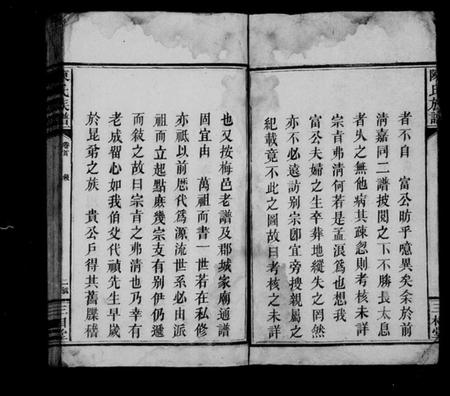 陳氏族譜
者不自　富公昉乎噫異矣余於前
清嘉同二譜披閱之下不勝長太息
者久之無他病其疎忽則考核未詳
宗㫖弗清何若是孟浪爲也想我
富公夫婦之生卒葬地縱失之罔然
亦不必遠訪别宗卽宜旁搜親屬之
紀載竟不此之圖故曰考核之未詳
也又按梅邑老譜及郡城家廟通譜
固宜由　萬祖而書一世若在私修
亦祇以前厯代爲源流世系必由派
祖而立起點庻幾宗支有别伊仍遞
而敍之故曰宗㫖之弗清也乃幸有
老成畱心如我伯攵代禎先生早歲
於昆弟之族　貴公戶得其舊牒稽
陳氏族譜
卷首
三相堂